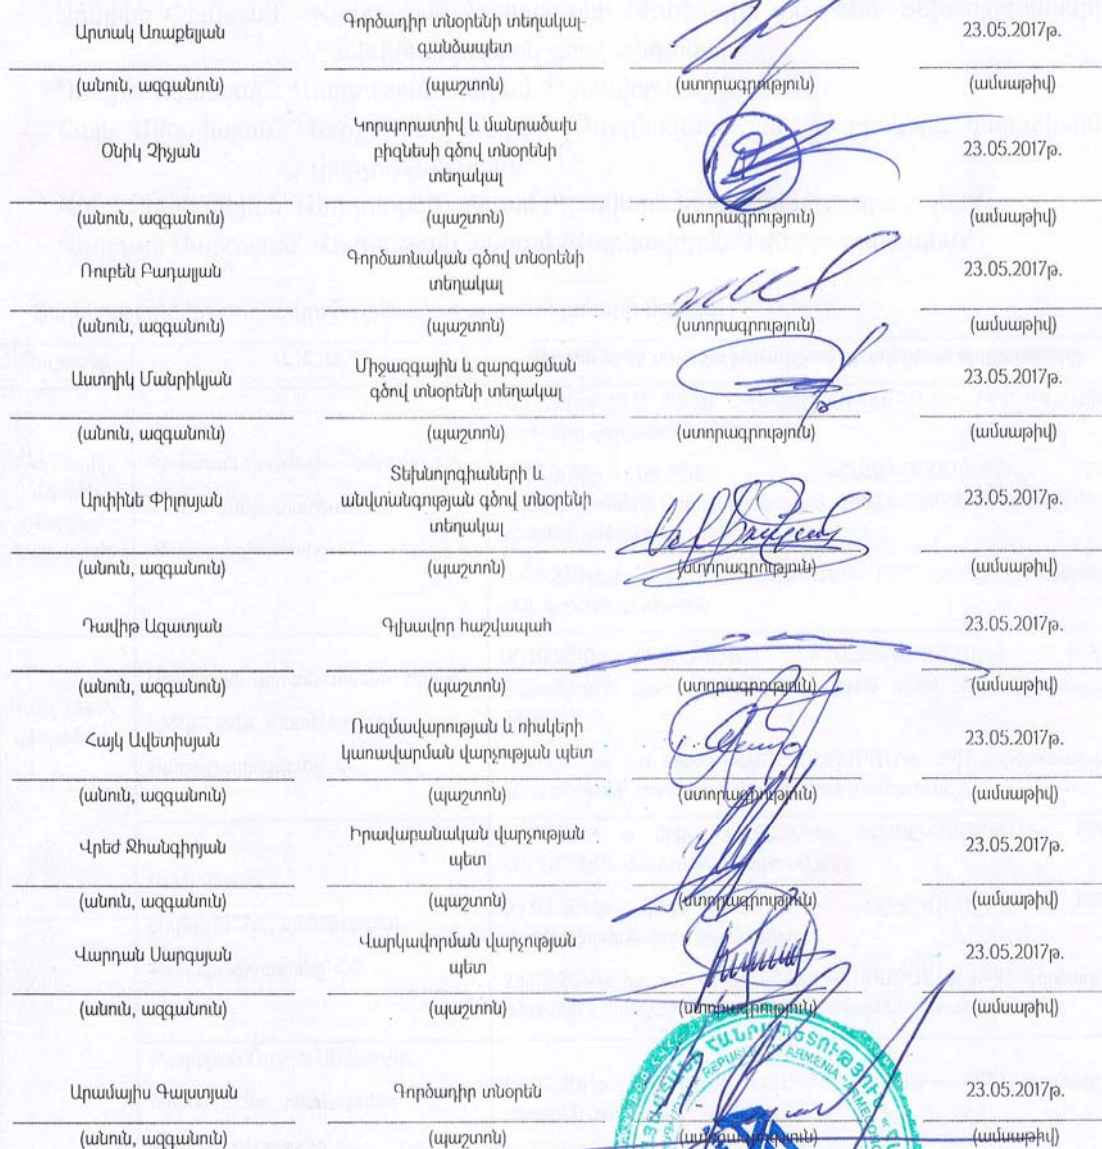 Արտակ Առաքելյան Գործադիր տնօրենի տեղակալ- 23.05.2017թ.
գանձապետ
(անուն, ազգանուն) (պաշտոն) (ստորագրություն) (ամսաթիվ)
Կորպորատիվ և մանրածախ
Օնիկ Չիչյան բիզնեսի գծով տնօրենի 23.05.2017թ.
տեղակալ
(անուն, ազգանուն) (պաշտոն) (ստորագրություն) (ամսաթիվ)
Ռուբեն Բադալյան Գործառնական գծով տնօրենի 23.05.2017թ.
տեղակալ
(անուն, ազգանուն) (պաշտոն) (ստորագրություն) (ամսաթիվ)
Աստղիկ Մանրիկյան Միջազգային և զարգացման 23.05.2017թ.
գծով տնօրենի տեղակալ
(անուն, ազգանուն) (պաշտոն) (ստորագրություն) (ամսաթիվ)
Տեխնոլոգիաների և
Արփինե Փիլոսյան անվտանգության գծով տնօրենի 23.05.2017թ.
տեղակալ
(անուն, ազգանուն) (պաշտոն) (ստորագրություն) (ամսաթիվ)
Դավիթ Ազատյան Գլխավոր հաշվապահ 23.05.2017թ.
(անուն, ազգանուն) (պաշտոն) (ստորագրություն) (ամսաթիվ)
Հայկ Ավետիսյան Ռազմավարության և ռիսկերի 23.05.2017թ.
կառավարման վարչության պետ
(անուն, ազգանուն) (պաշտոն) (ստորագրություն) (ամսաթիվ)
Վրեժ Ջհանգիրյան Իրավաբանական վարչության 23.05.2017թ.
պետ
(անուն, ազգանուն) (պաշտոն) (ստորագրություն) (ամսաթիվ)
Վարդան Սարգսյան Վարկավորման վարչության 23.05.2017թ.
պետ
(անուն, ազգանուն) (պաշտոն) (ստորագրություն) (ամսաթիվ)
REPUBLIC OF ARMENIA
Արամայիս Գալստյան Գործադիր տնօրեն 23.05.2017թ.
(անուն, ազգանուն) (պաշտոն) (ստորագրություն) (ամսաթիվ)